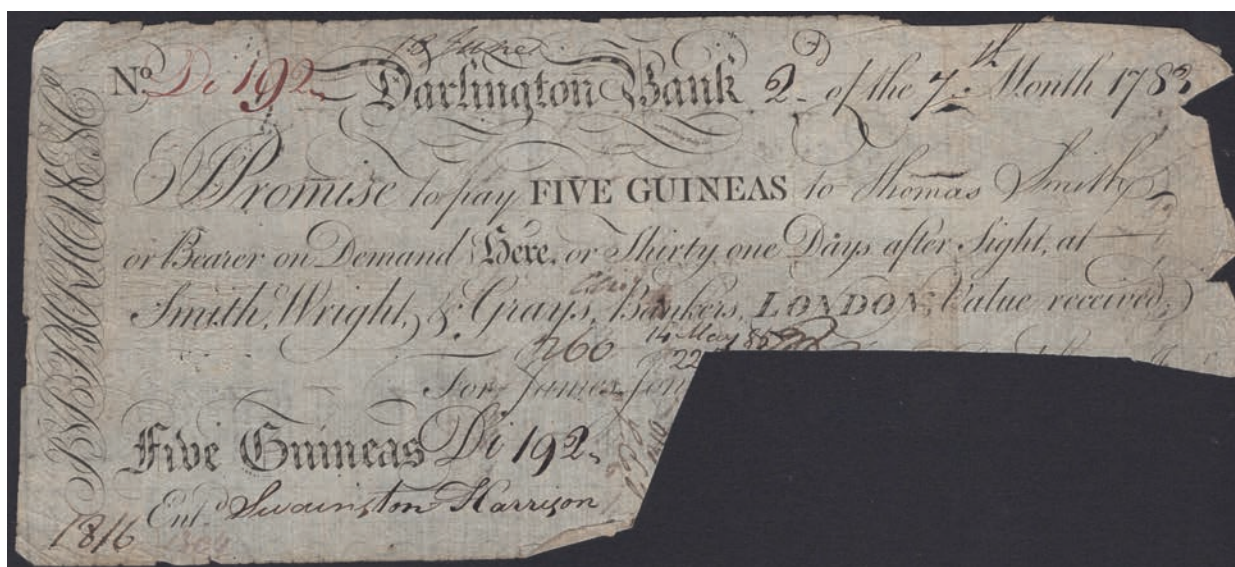 18 June
No. Di 192 Darlington Bank 2d of the 7th Month 1783
I Promise to pay FIVE GUINEAS to Thomas Smith
or Bearer on Demand Here, or Thirty one Days after Sight, at
Smith, Wright, & Grays, Bankers, LONDON; Value received;
260 14 May 85
22
For James Jon
Five Guineas Di 192
Entd Swainston Harrison
1816